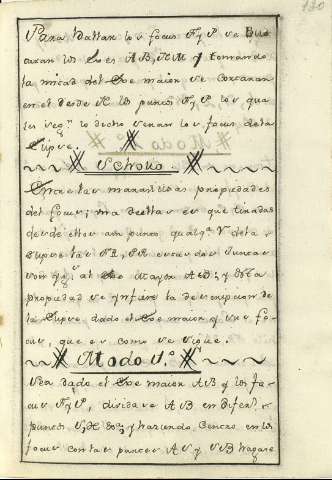 130
Para hallar los focus F, y P se Bus
caran los exes AB, HM y tomando
la mitad del Exe maior se cortaran
en el desde H los puntos F, y P, los qua
les seg.n lo dicho seran los focus dela
Curve.
Scholio
Entre las maravillosas propiedades
del focus, una de ellas es que tiradas
desde ellos a un punto qualq.a V dela
Curva las FR, PR estas dos juntas
son yg.s al Exe Mayor AB; y esta
propiedad se ynfiere la descripcion de
la Curve dado el Exe maior y sus fo-
cus, que es como se sigue.
Modo 1.o
Sea dado el Exe maior AB y los fo-
cus F, y P, dividase AB en difer.s
puntos S, H &c.; y haziendo Centro en los
focus con las partes AS y SB hagase